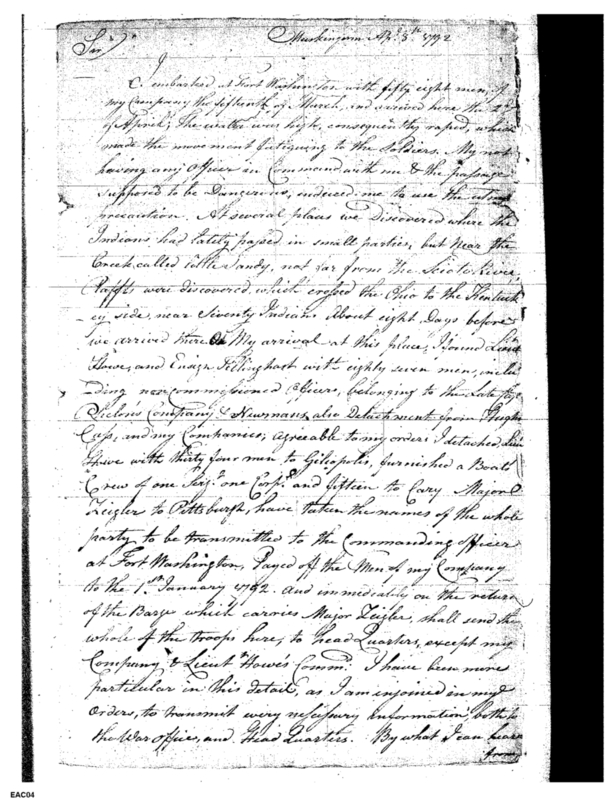 Muskingum Apl. 5th 1792
Sir
I embarked at Fort Washington with fifty eight men, of
my Company the fifteenth of March, and arrived here the 2d
of April; the water was high, consequently rapid, which
made the movement fatiguing to the Soldiers. My not
having any Officer in Command with me & the passage
supposed to be Dangerous, induced me to use the utmost
precaution. At several places we Discovered where the
Indians had lately passed in small parties, but near the
Creek called Little Sandy, not far from the Scioto River,
Raffts were discovered which crossed the Ohio to the Kentuck
ey side, near Seventy Indians about eight Days before
we arrived there. On My arrival at this place, I found Lieut
Howe, and Ensign Tillinghast with eighty seven men, inclu
ding non Commissioned Officers, belonging to the Late
Company & Newmans, also Detachment from Hughs
Cass, and my Companies; agreeable to my orders I detached Lieut
Howe with thirty four men to Galiopolis, furnished a Boats
Crew of one Sergt. one Corpl. and fifteen to Cary Major
Zeigler to Pittsburgh, have taken the names of the whole
party to be transmitted to the Commanding officer
at Fort Washington, Payed off the Men of my Company
to the 1st January 1792. and immediately on the return
of the Barge which carries Major Zeigler, shall send the
whole of the troops here, to Head Quarters, except my
Company & Lieut Howe's Commd. I have been more
particular in this detail, as I am injoined in my
Orders, to transmit every nessissary information, both to
the War office, and Head Quarters. By what I can hear
from
EAC04